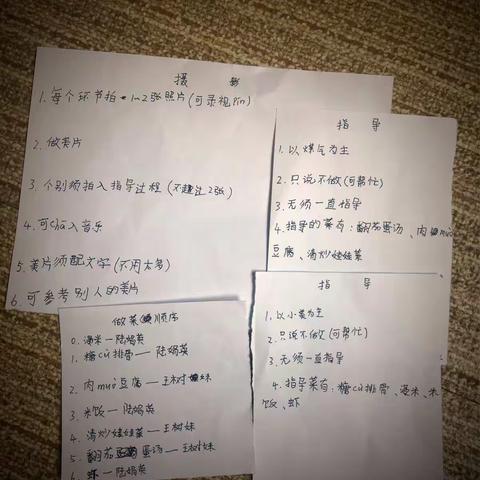 摄 影
1. 每个环节拍 1~2张照片(可录视pin)
2. 做美片
3. 个别须拍入指导过程 (不超过2张)
4. 可chā入音乐
5. 美片须配文字(不用太多)
6. 可参考别人的美片
指 导
1. 以煤气为主
2. 只说不做(可帮忙)
3. 无须一直指导
4. 指导的菜有:翻茄蛋汤、肉muò
豆腐、清炒娃娃菜
指 导
1. 以小美为主
2. 只说不做(可帮忙)
3. 无须一直指导
4. 指导菜有:糖cù排骨、浸米、米
饭、虾
做菜顺序
0. 浸米—陆娟英
1. 糖cù排骨—陆娟英
2. 肉muò豆腐—王树妹
3. 米饭—陆娟英
4. 清炒娃娃菜—王树妹
5. 翻茄蛋汤—王树妹
6. 虾—陆娟英